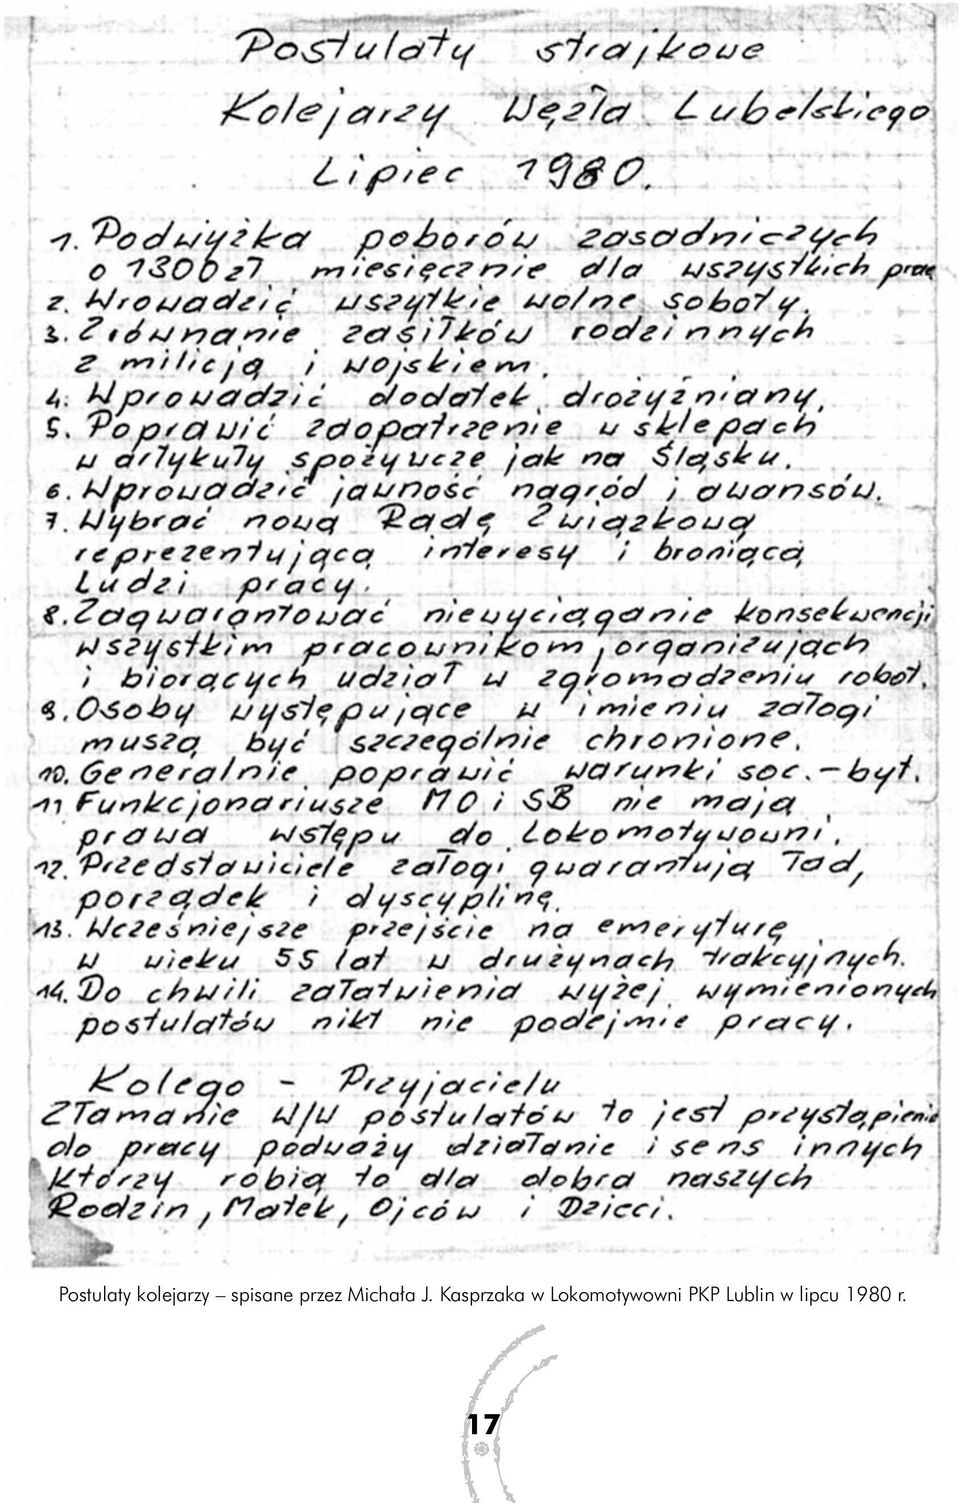 Postulaty strajkowe
Kolejarzy Węzła Lubelskiego
Lipiec 1980.
1. Podwyżka poborów zasadniczych
o 1300 zł miesięcznie dla wszystkich prac
2. Wrowadzić wszytkie wolne soboty.
3. Zrównanie zasiłków rodzinnych
z milicją i wojskiem.
4. Wprowadzić dodatek drożyźniany.
5. Poprawić zdopatrzenie w sklepach
w artykuły spożywcze jak na Śląsku.
6. Wprowadzić jawność nagród i awansów.
7. Wybrać nową Radę Związkową
reprezentującą interesy i broniącą
Ludzi pracy.
8. Zagwarantować niewyciąganie konsekwencji
wszystkim pracownikom, organizujących
i biorących udział w zgromadzeniu robot.
9. Osoby występujące w imieniu załogi
muszą być szczególnie chronione.
10. Generalnie poprawić warunki soc.-byt.
11 Funkcjonariusze MO i SB nie mają
prawa wstępu do Lokomotywowni.
12. Przedstawiciele załogi gwarantują ład,
porządek i dyscyplinę.
13. Wcześniejsze przejście na emeryturę
w wieku 55 lat w drużynach trakcyjnych.
14. Do chwili załatwienia wyżej wymienionych
postulatów nikt nie podejmie pracy.
Kolego - Przyjacielu
Złamanie W/W postulatów to jest przystąpienie
do pracy podważy działanie i sens innych
którzy robią to dla dobra naszych
Rodzin, Matek, Ojców i Dzieci.
Postulaty kolejarzy – spisane przez Michała J. Kasprzaka w Lokomotywowni PKP Lublin w lipcu 1980 r.
17